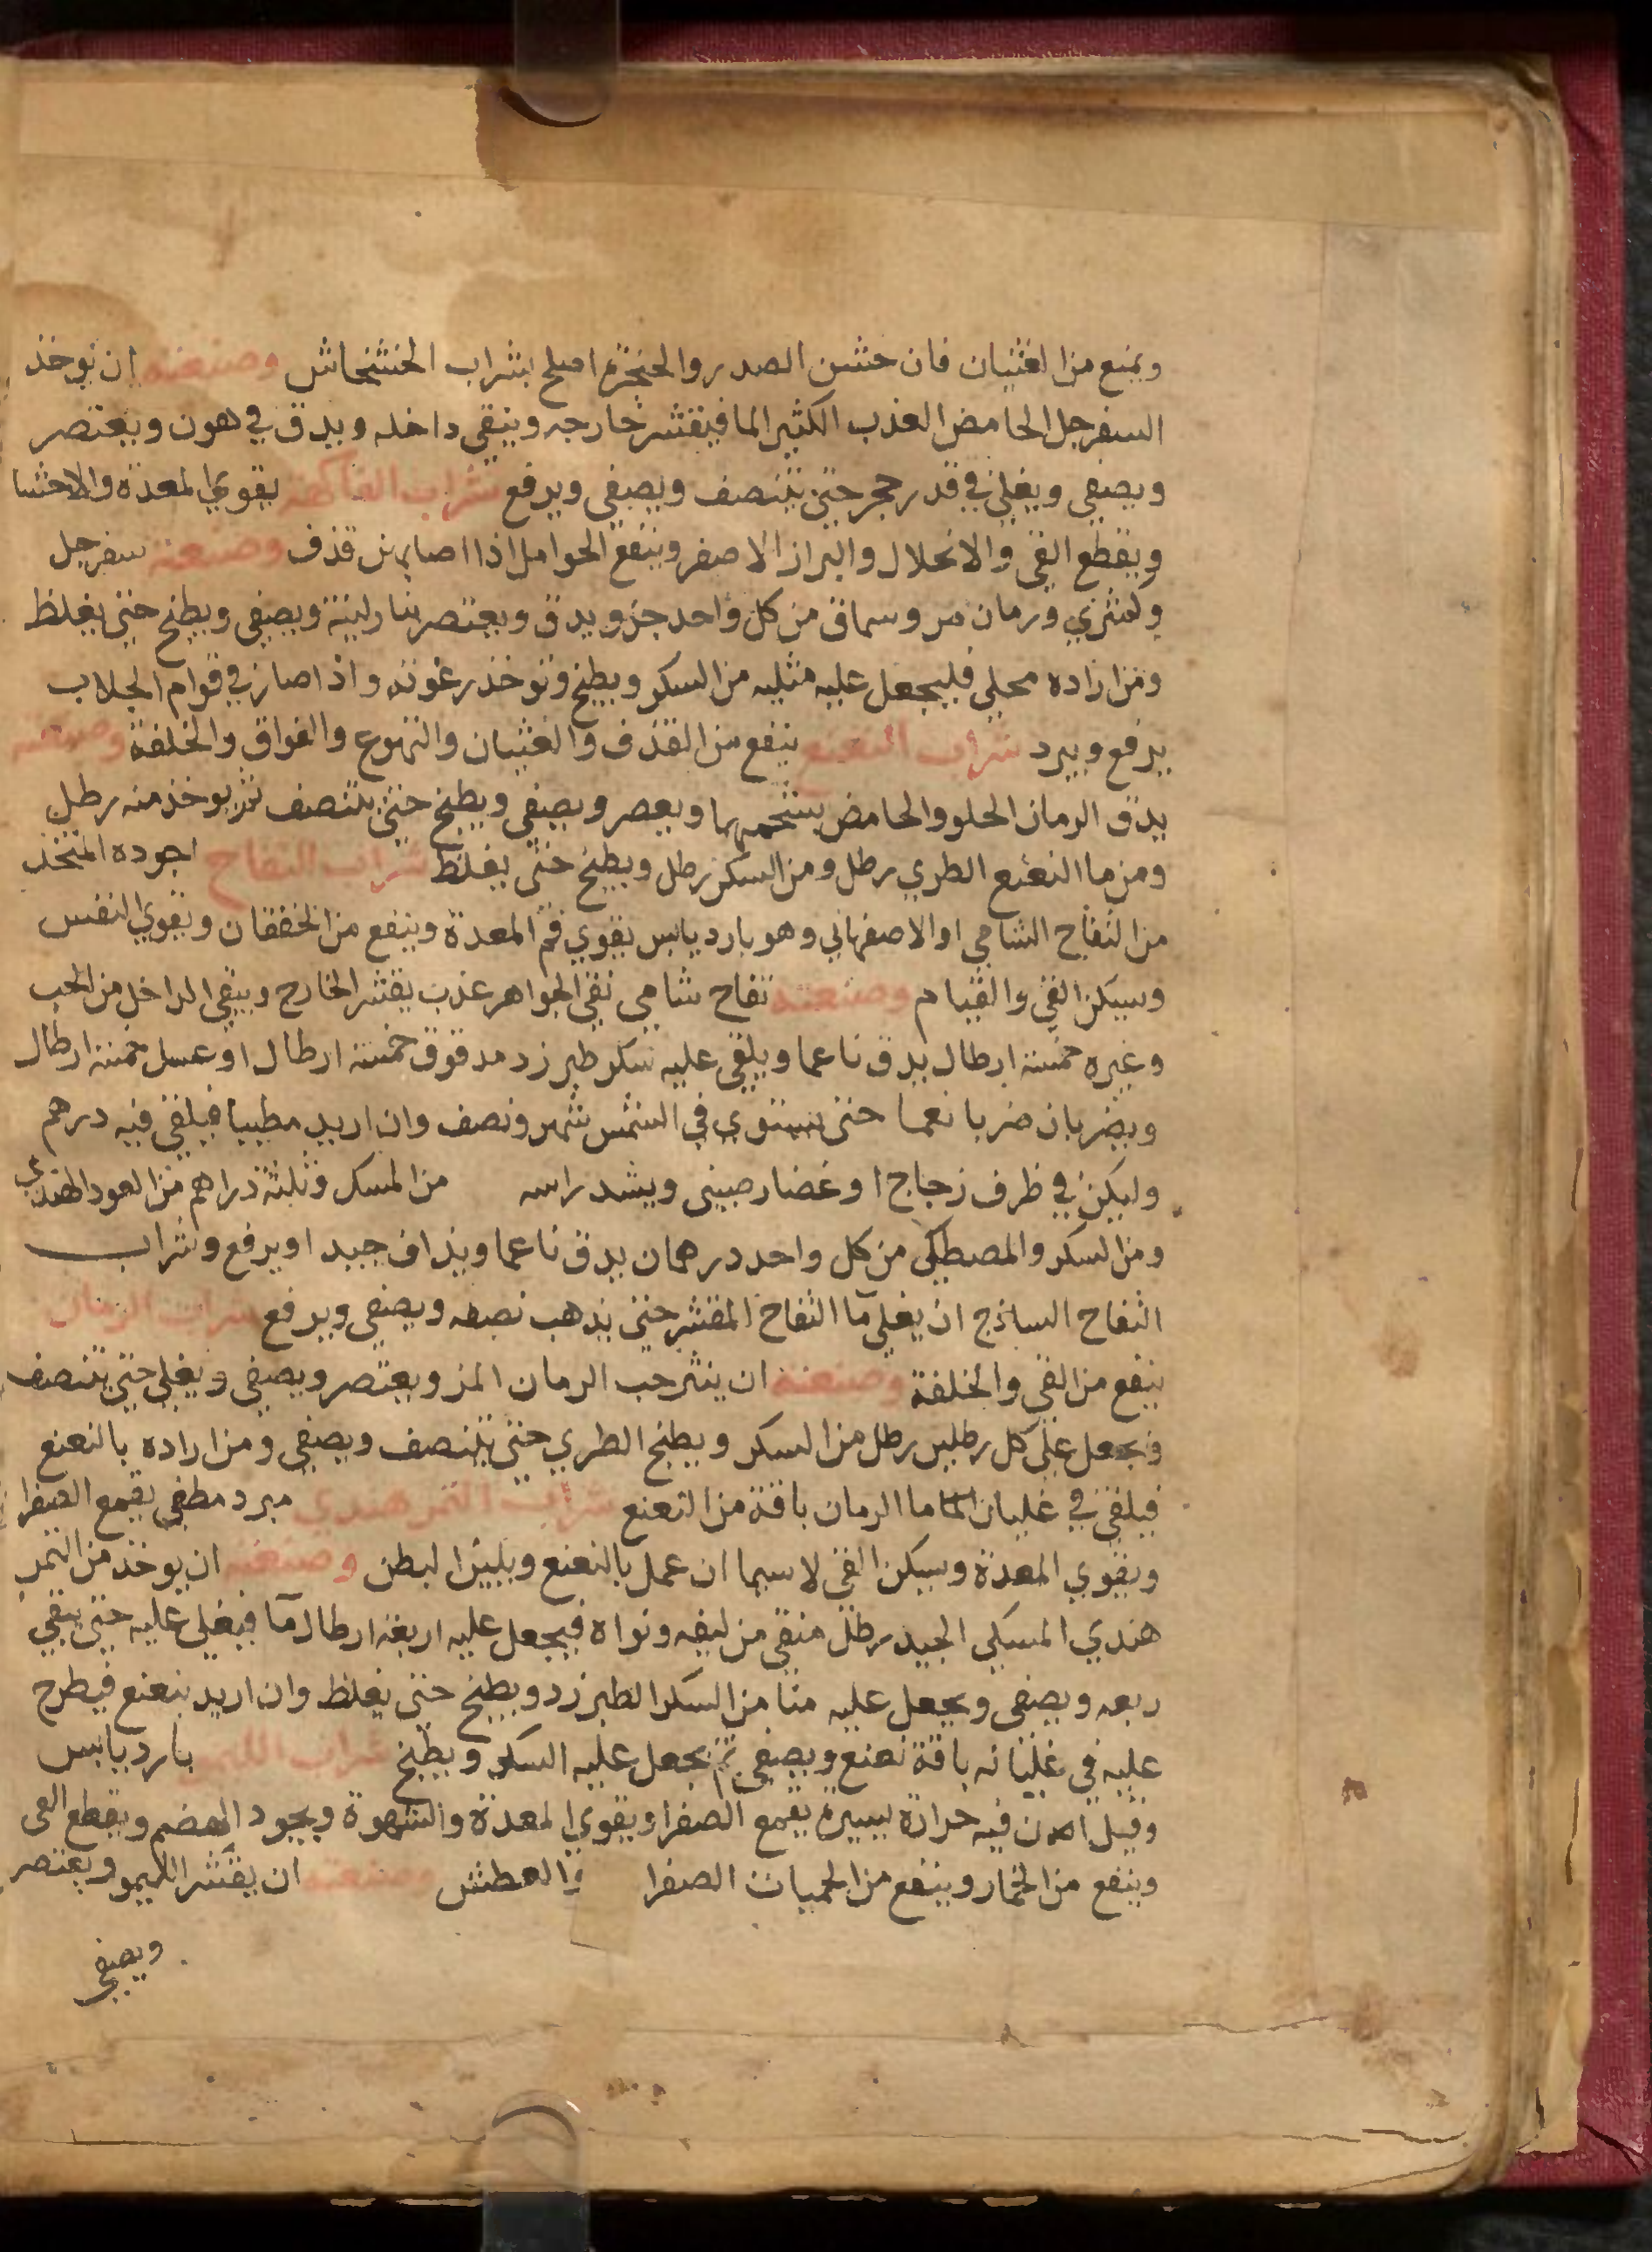 ويمنع من الغثيان فان خشن الصدر والحنجرة اصلح بشراب الخشخاش وصنعته ان توخذ
السفرجل الحامض العذب الكثير الما فيقشر خارجه وينقى داخله ويدق في هون ويعتصر
ويصفى ويغلى في قدر حجر حتى يتنصف ويصفى ويرفع شراب الفاكهة يقوي المعدة والاحشا
ويقطع القي والانحلال والبراز الاصفر وينفع الحوامل اذا اصابهن قذف وصنعته سفرجل
وكمثري ورمان مر وسماق من كل واحد جزو يدق ويعتصر بنار لينة ويصفى ويطبخ حتى يغلظ
ومن اراده محلي فليجعل عليه مثليه من السكر ويطبخ وتوخذ رغوته واذا صار في قوام الجلاب
يرفع ويبرد شراب النعنع ينفع من القذف والغثيان والتهوع والفواق والخلفة وصنعته
يدق الرمان الحلو والحامض بشحمهما ويعصر ويصفى ويطبخ حتى يتنصف ثم يوخذ منه رطل
ومن ما النعنع الطري رطل ومن السكر رطل ويطبخ حتى يغلظ شراب التفاح اجوده المتخذ
من التفاح الشامي او الاصفهاني وهو بارد يابس يقوي فم المعدة وينفع من الخفقان ويقوي النفس
ويسكن القي والقيام وصنعته تفاح شامي نقي الجواهر عذب يقشر الخارج وينقي الداخل من الحب
وغيره خمسة ارطال يدق ناعما ويلقى عليه سكر طبرزد مدقوق خمسة ارطال او عسل خمسة ارطال
ويضربان ضربا نعما حتى يستوي في الشمس شهر ونصف وان اريد مطيبا فيلقى فيه درهم
وليكن في ظرف زجاج او غضار صيني ويشد راسه من المسك وثلثة دراهم من العود الهندي
ومن السكر والمصطكى من كل واحد درهمان يدق ناعما ويذاف جيدا ويرفع وشراب
التفاح الساذج ان يغلي ما التفاح المقشر حتى يذهب نصفه ويصفى ويرفع شراب الرمان
ينفع من القي والخلفة وصنعته ان ينثر حب الرمان المز ويعتصر ويصفى ويغلى حتى يتنصف
ويجعل على كل رطلين رطل من السكر ويطبخ الطري حتى يتنصف ويصفى ومن اراده بالنعنع
فيلقى في غليان الما ما الرمان باقة من النعنع شراب التمر هندي مبرد مطفي يقمع الصفرا
ويقوي المعدة ويسكن القي لا سيما ان عمل بالنعنع ويلين البطن وصنعته ان يوخذ من التمر
هندي المسكي الجيد رطل منقي من ليفه ونواه فيجعل عليه اربعة ارطال ما فيغلي عليه حتى يبقى
ربعه ويصفى ويجعل عليه منا من السكر الطبرزد ويطبخ حتى يغلظ وان اريد بنعنع فيطرح
عليه في غليانه باقة نعنع ويصفى ثم يجعل عليه السكر ويطبخ شراب الليمو بارد يابس
وقيل ان فيه حرارة يسيرة يقمع الصفرا ويقوي المعدة والشهوة ويجود الهضم ويقطع القي
وينفع من الخمار وينفع من الحميات الصفرا والعطش وصنعته ان يقشر الليمو ويعتصر
ويصفى